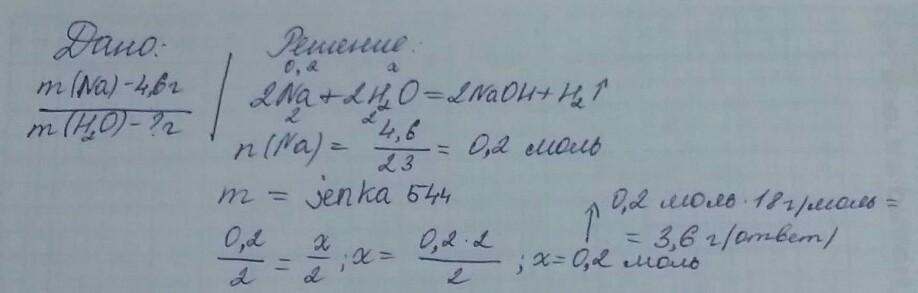 Дано:
m(Na)-4,6г
m(H₂O)-?г
Решение:
0,2 x
2Na+2H₂O=2NaOH+H₂↑
2 2
n(Na) = 4,6/23 = 0,2 моль
m = jenka 544
0,2/2 = x/2 ; x = 0,2·2/2 ; x=0,2 моль
↑ 0,2 моль·18г/моль =
= 3,6 г/ответ/